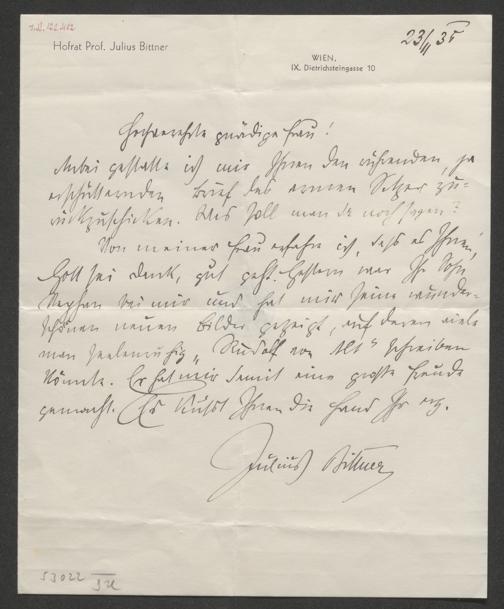 I.N. 122.412
23/II 35
Hofrat Prof. Julius Bittner
WIEN,
IX. Dietrichsteingasse 10
Hochverehrte gnädige Frau!
Anbei gestatte ich mir Ihnen den rührenden, ja
erschütternden Brief des armen Setzer zu-
rückzuschicken. Was soll man da noch sagen?
Von meiner Frau erfahre ich, dass es Ihnen,
Gott sei Dank, gut geht. Gestern war Ihr Sohn
bei mir und hat mir seine wunder-
schönen neuen Bilder gezeigt, auf deren viele
man seelenruhig "Rudolf von Alt" schreiben
könnte. Er hat mir damit eine große Freude
gemacht. Es küsst Ihnen die Hand Ihr erg.
Julius Bittner
53022